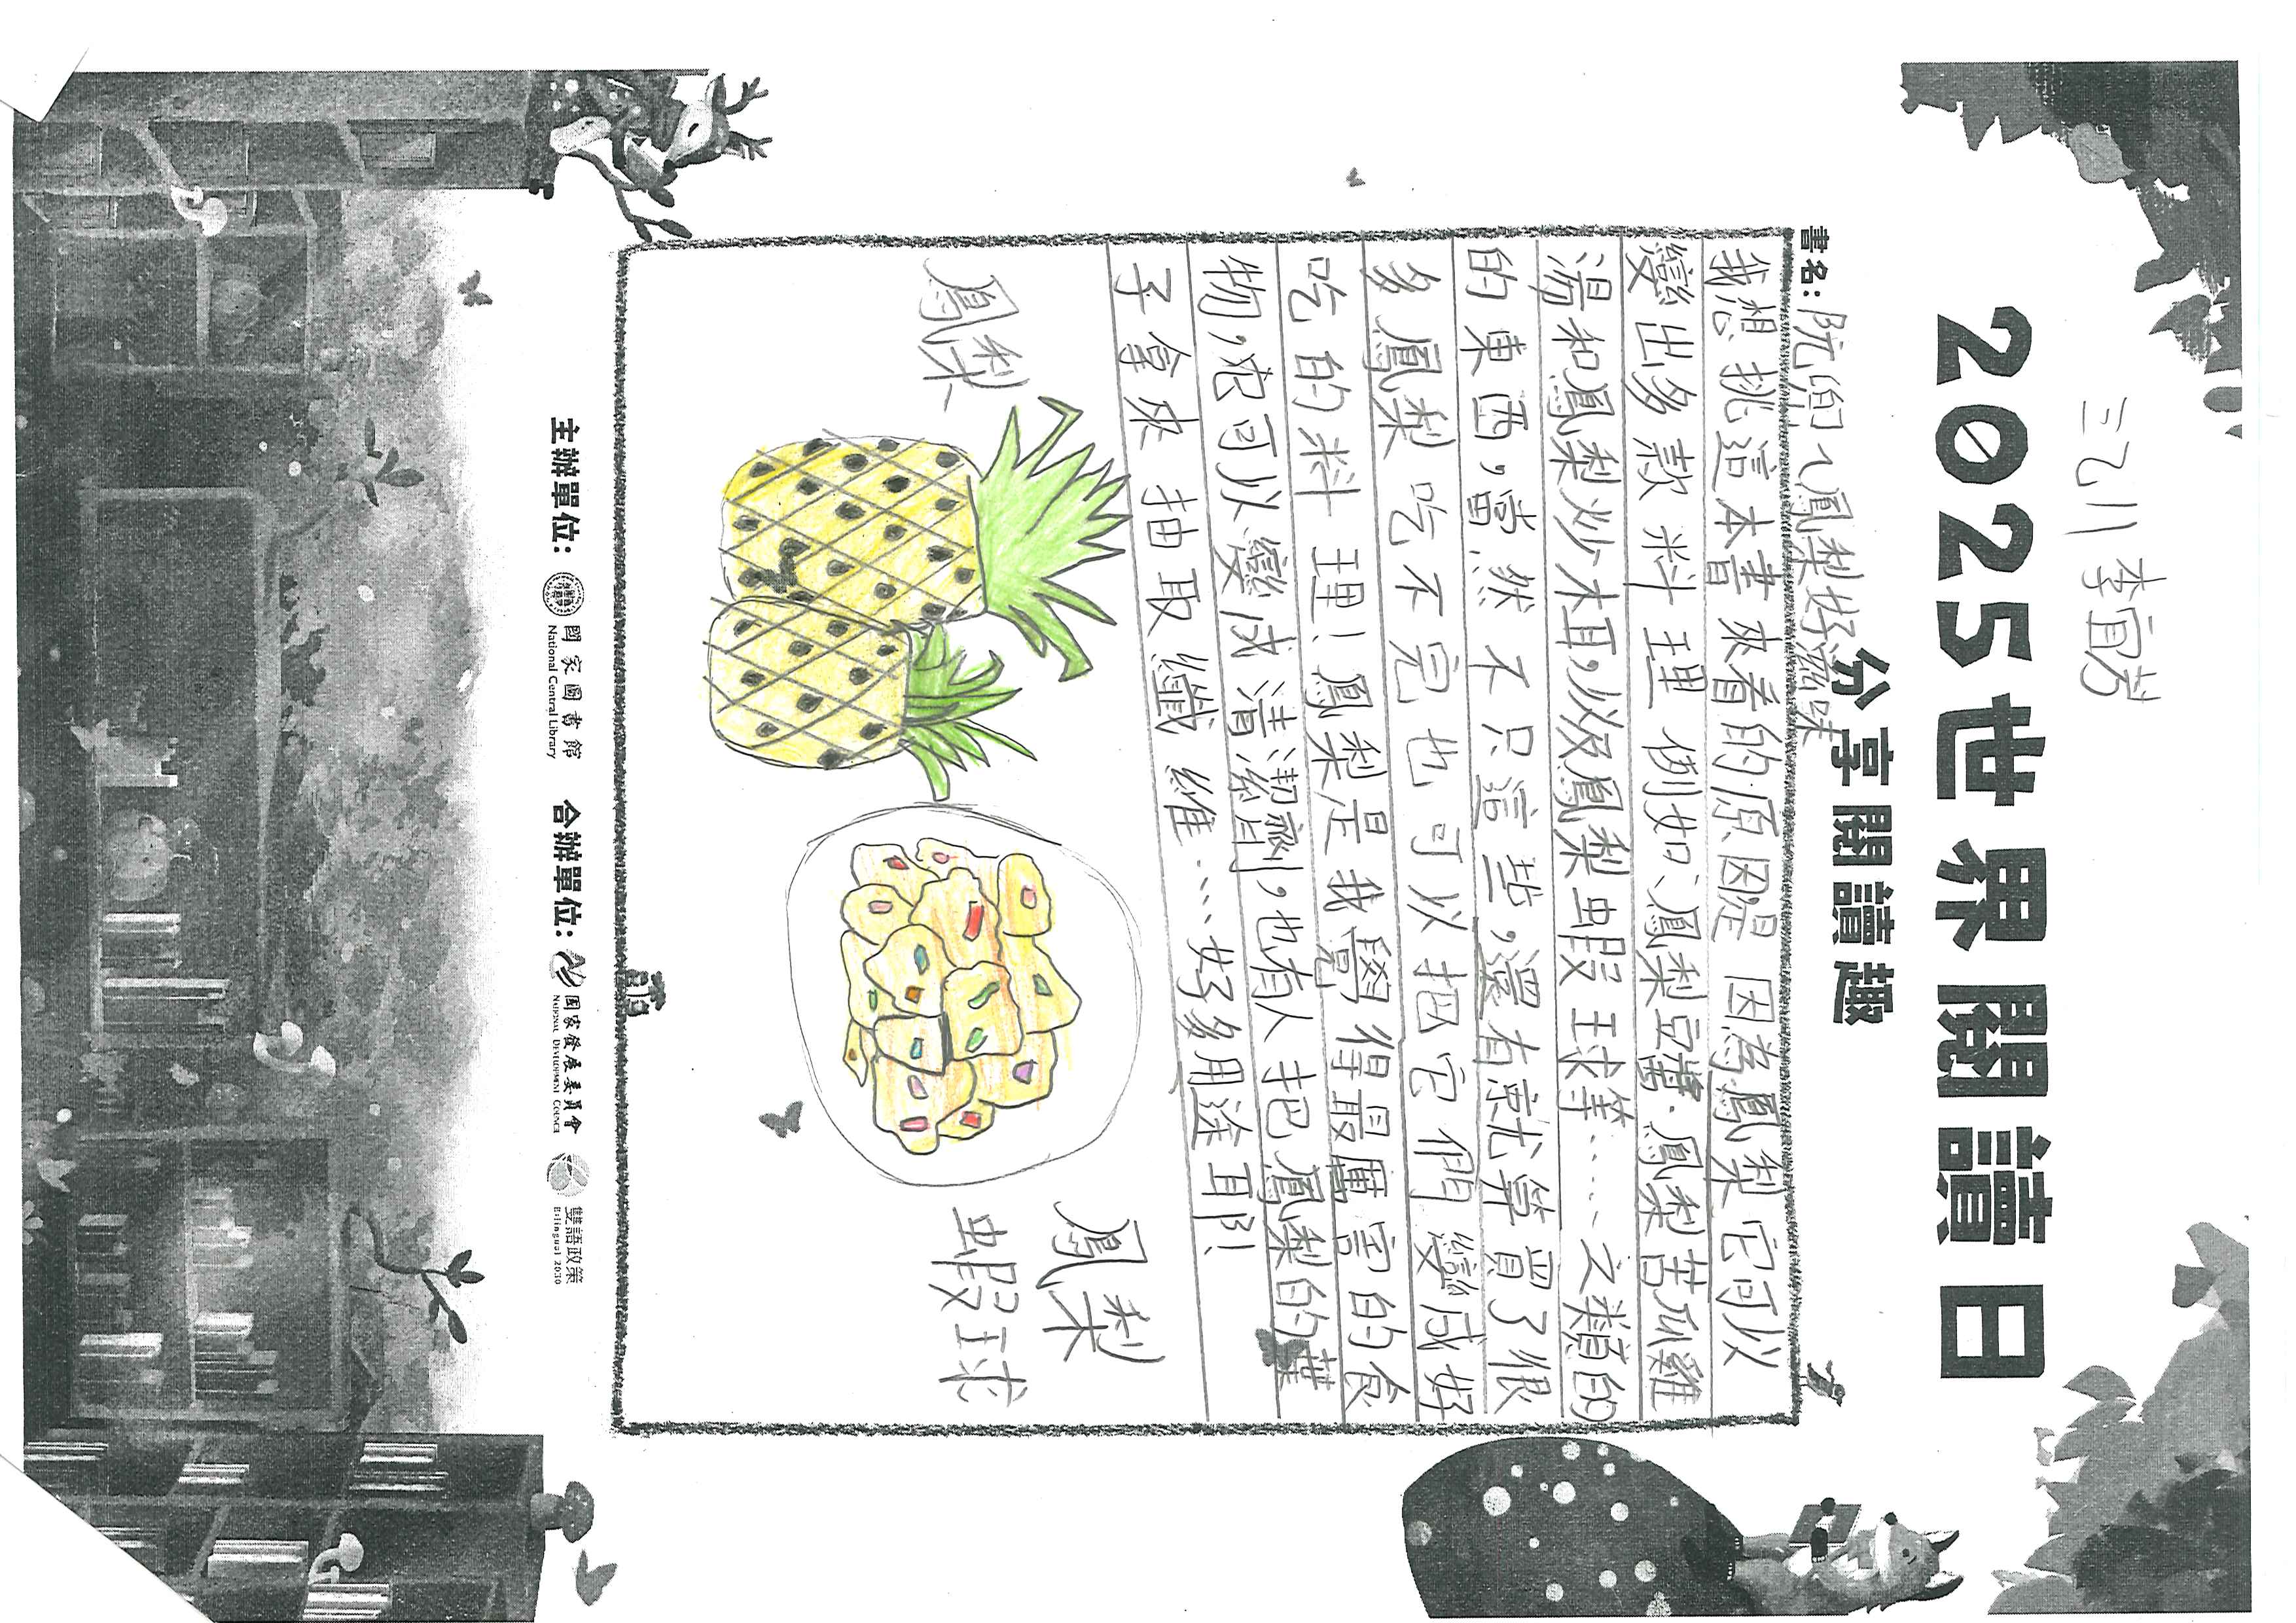 三乙 11 李宜芳
2025世界閱讀日
分享閱讀趣
書名:阮的ㄟ鳳梨好滋味
我想挑這本書來看的原因是 因為鳳梨它可以
變出多款料理 例如:鳳梨豆醬.鳳梨苦瓜雞
湯和鳳梨炒木耳,以及鳳梨蝦球等……之類的
的東西,當然不只這些,還有就算買了很
多鳳梨吃不完也可以把它們變成好
吃的料理!鳳梨是我覺得最厲害的食
物,它可以變成清潔劑,也有人把鳳梨的葉
子拿來抽取纖維……好多用途耶!
鳳梨
鳳梨
蝦球
主辦單位: 國家圖書館 National Central Library 合辦單位: 國家發展委員會 National Development Council 雙語政策 Bilingual 2030